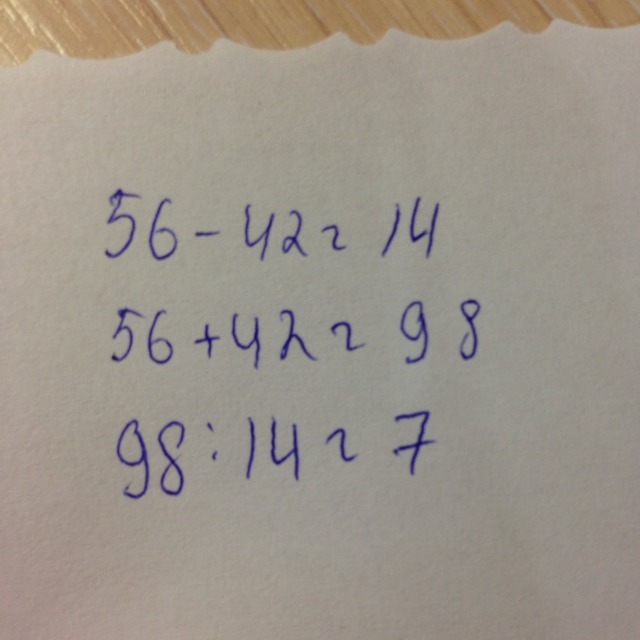 56 - 42 = 14
56 + 42 = 98
98 : 14 = 7